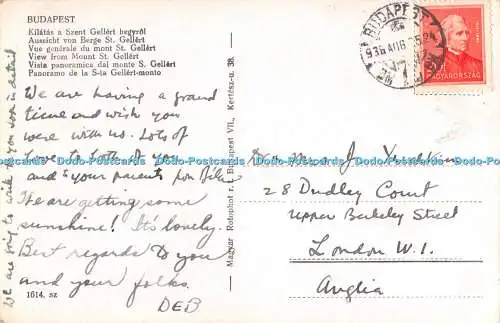 BUDAPEST
Kilátás a Szent Gellért hegyről
Aussicht von Berge St. Gellért
Vue generale du mont St. Gellért
View from Mount St. Gellért
Vista panoramica dal monte S. Gellért
Panoramo de la S-ta Gellért-monto
We are having a grand
time and wish you
were with us. Lots of
love to both of you
and to your parents from
The are getting some
sunshine! It's lovely.
Best regards to you
and your folks.
DEB
We are going to write to you soon in detail
1614. sz
Magyar Rotophot r. t. Budapest VII., Kertész-u. 38.
BUDAPEST
936 AUG
MAGYARORSZÁG
J.
28 Dudley Court
Upper Berkeley Street
London W.1.
Anglia
Dodo-Postcards Dodo-Postcards Dodo-Postcards Dodo-Postcards Dodo-Postcards Dodo-Postcards